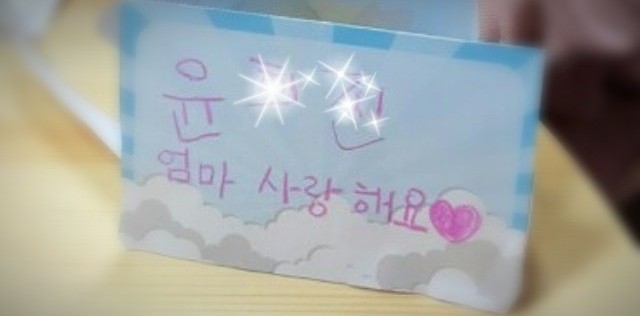 윤
엄마 사랑해요